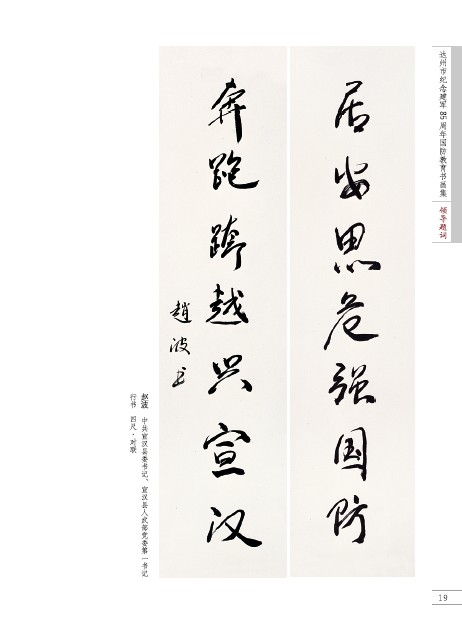 达州市纪念建军85周年国防教育书画集
领导题词
居安思危强国防
奔跑跨越兴宣汉
趙波书
赵波 中共宣汉县委书记、宣汉县人武部党委第一书记
行书 四尺·对联
19